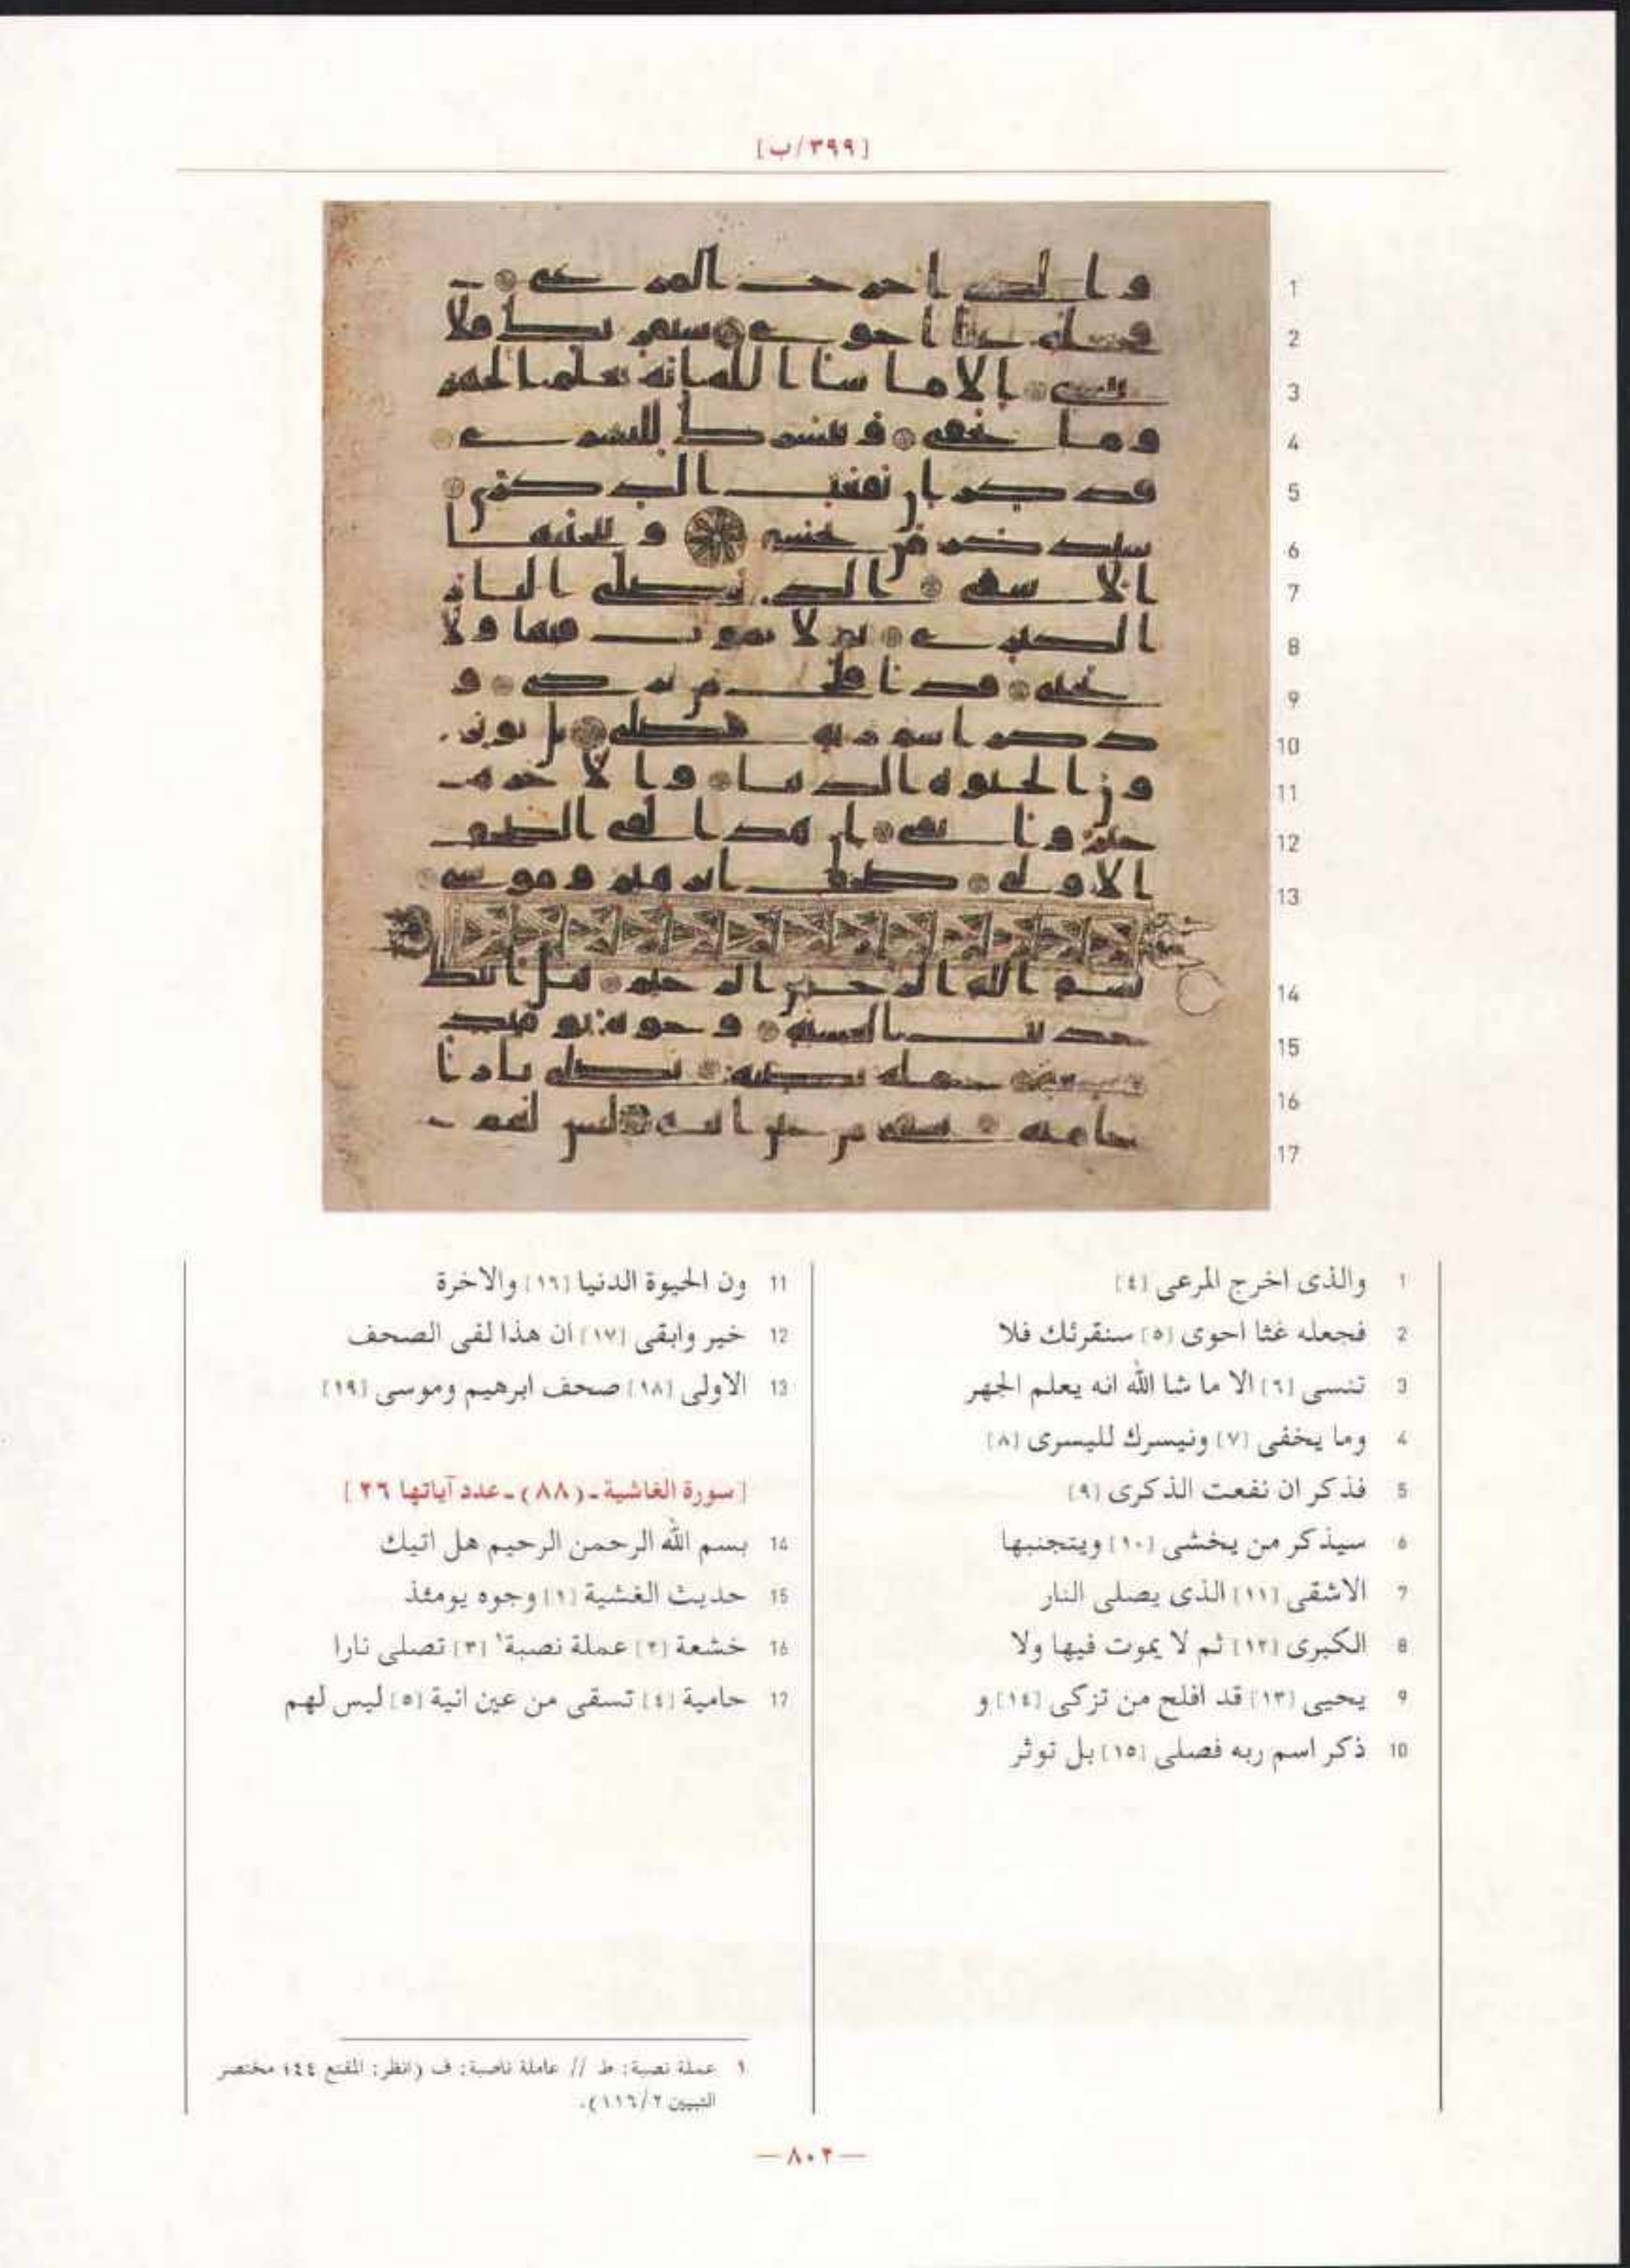 [٣٩٩/ب]
1 والذى اخرج المرعى [٤]
2 فجعله غثا احوى [٥] سنقرئك فلا
3 تنسى [٦] الا ما شا الله انه يعلم الجهر
4 وما يخفى [٧] ونيسرك لليسرى [٨]
5 فذكر ان نفعت الذكرى [٩]
6 سيذكر من يخشى [١٠] ويتجنبها
7 الاشقى [١١] الذى يصلى النار
8 الكبرى [١٢] ثم لا يموت فيها ولا
9 يحيى [١٣] قد افلح من تزكى [١٤] و
10 ذكر اسم ربه فصلى [١٥] بل توثر
11 ون الحيوة الدنيا [١٦] والاخرة
12 خير وابقى [١٧] ان هذا لفى الصحف
13 الاولى [١٨] صحف ابرهيم وموسى [١٩]
[سورة الغاشية ـ (٨٨) ـ عدد آياتها ٢٦]
14 بسم الله الرحمن الرحيم هل اتيك
15 حديث الغشية [١] وجوه يومئذ
16 خشعة [٢] عملة نصبة١ [٣] تصلى نارا
17 حامية [٤] تسقى من عين انية [٥] ليس لهم
١ عملة نصبة: ط // عاملة ناصبة: ف (انظر: المقنع ٤٤؛ مختصر
التبيين ١١٦/٢).
— ٨٠٢ —